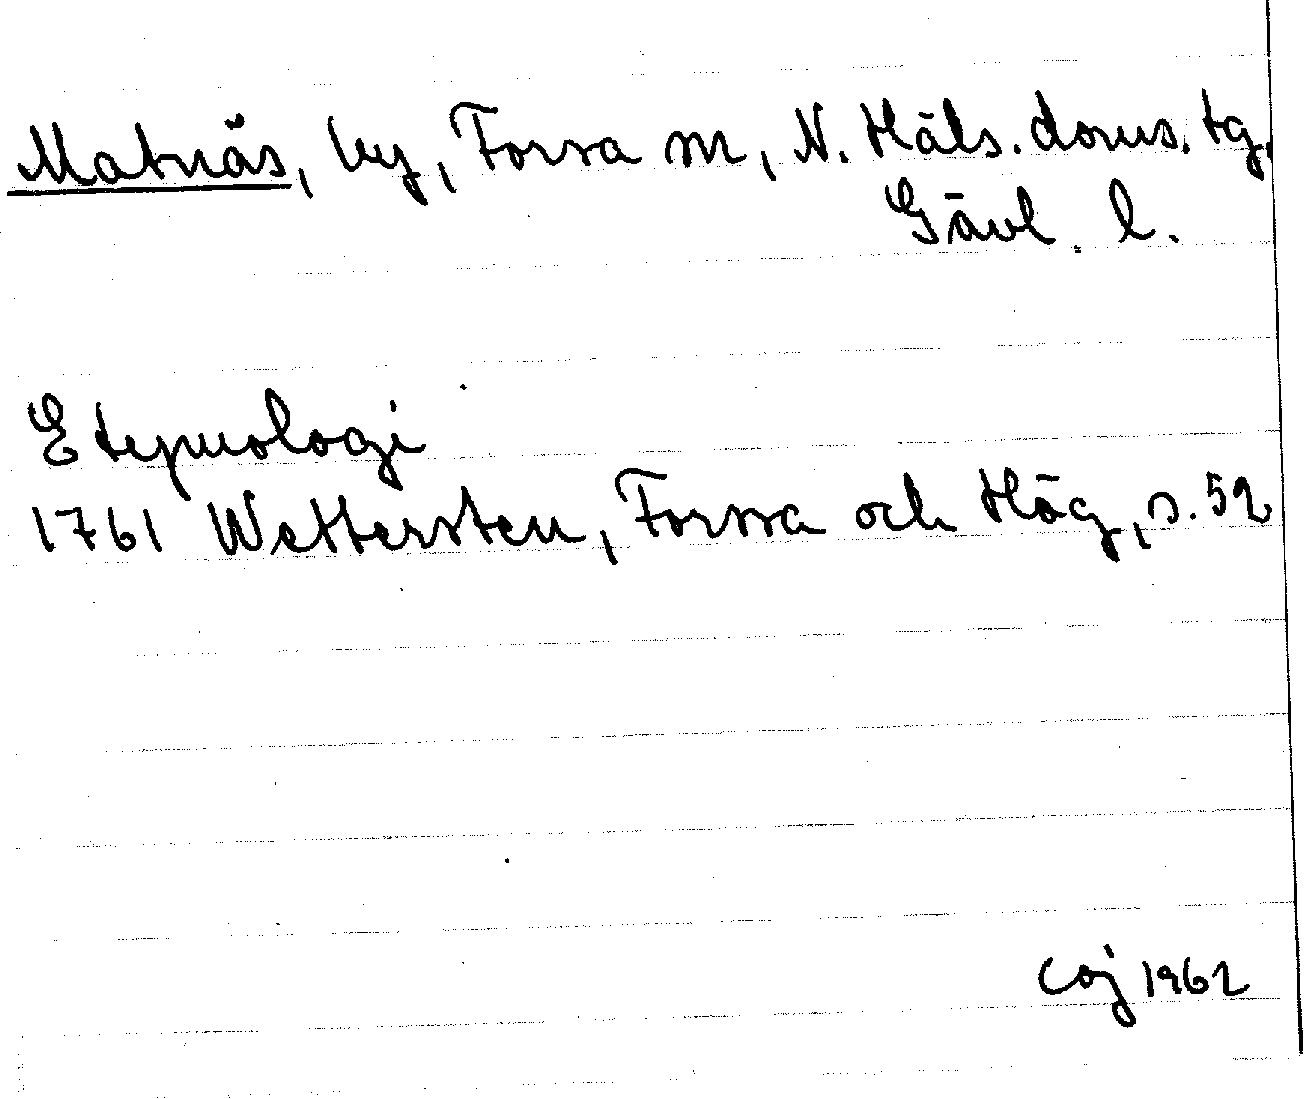 Matnäs, by, Forsa sn, N. Häls. doms. tg.
Gävl. l.
Etymologi
1761 Wettersten, Forssa och Hög, s. 52
COJ 1962